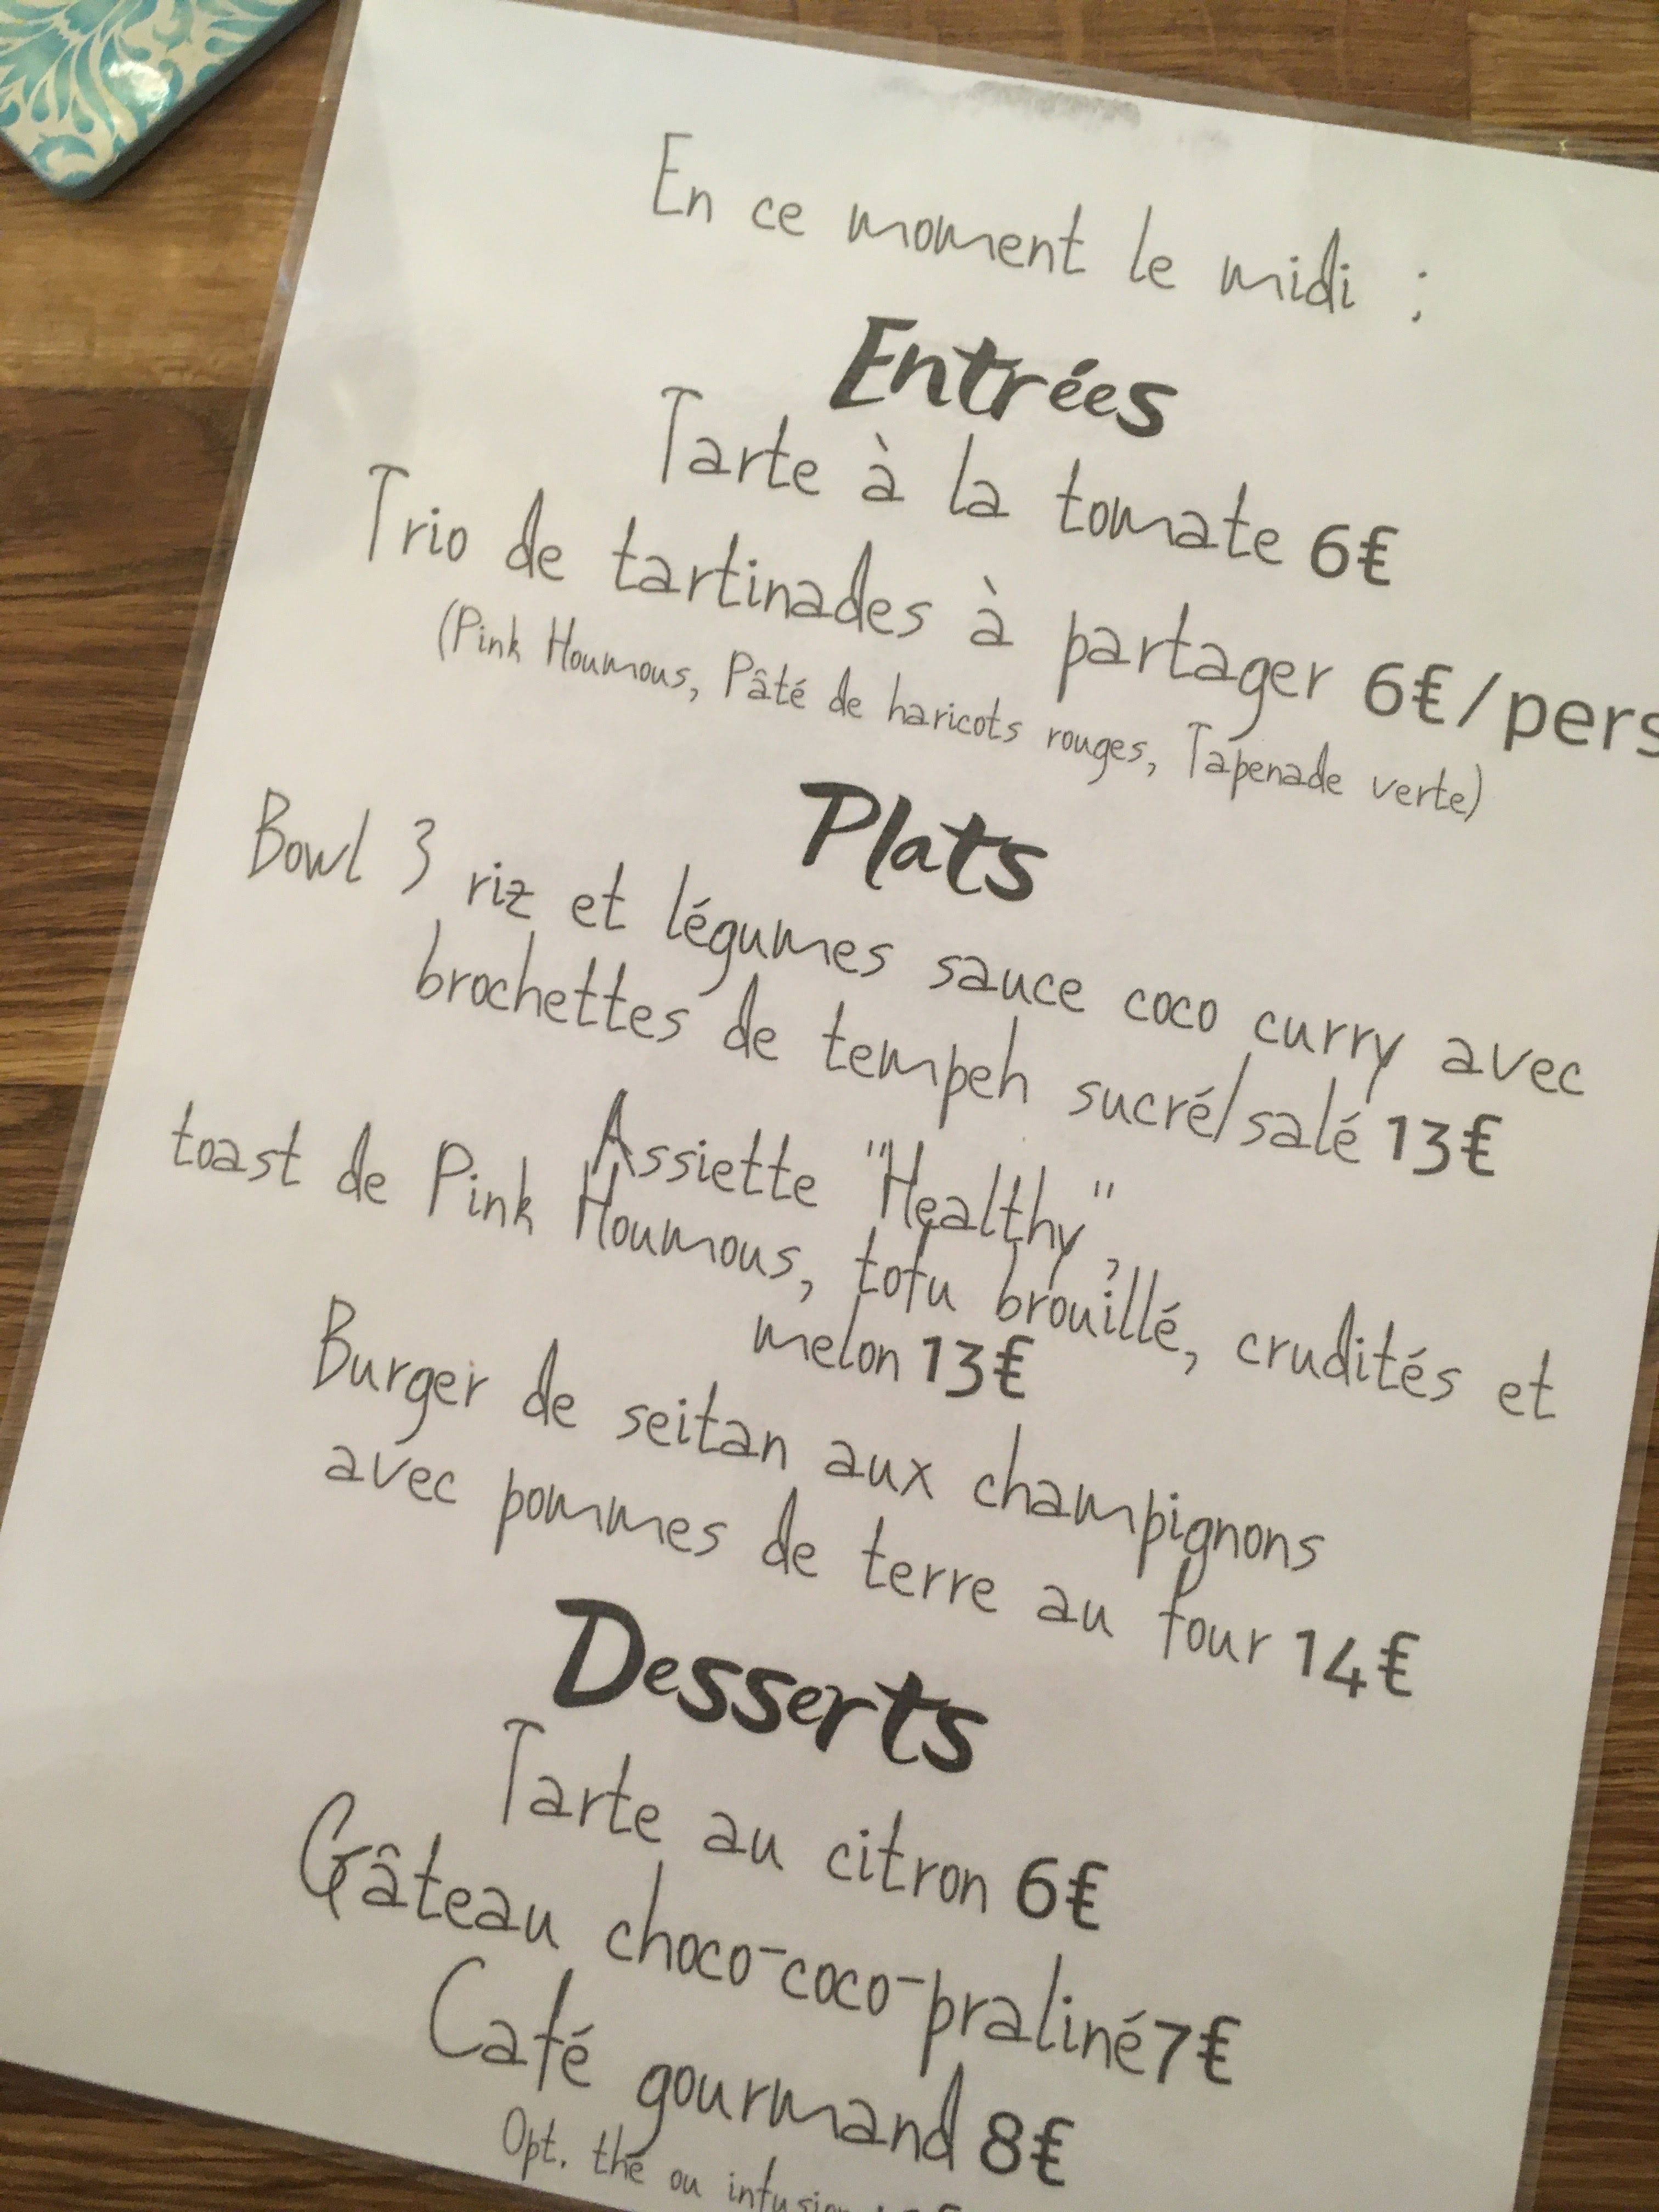 En ce moment le midi :
Entrées
Tarte à la tomate 6€
Trio de tartinades à partager 6€/pers
(Pink Houmous, Pâté de haricots rouges, Tapenade verte)
Plats
Bowl 3 riz et légumes sauce coco curry avec
brochettes de tempeh sucré/salé 13€
Assiette "Healthy",
toast de Pink Houmous, tofu brouillé, crudités et
melon 13€
Burger de seitan aux champignons
avec pommes de terre au four 14€
Desserts
Tarte au citron 6€
Gâteau choco-coco-praliné 7€
Café gourmand 8€
Opt. thé ou infusion